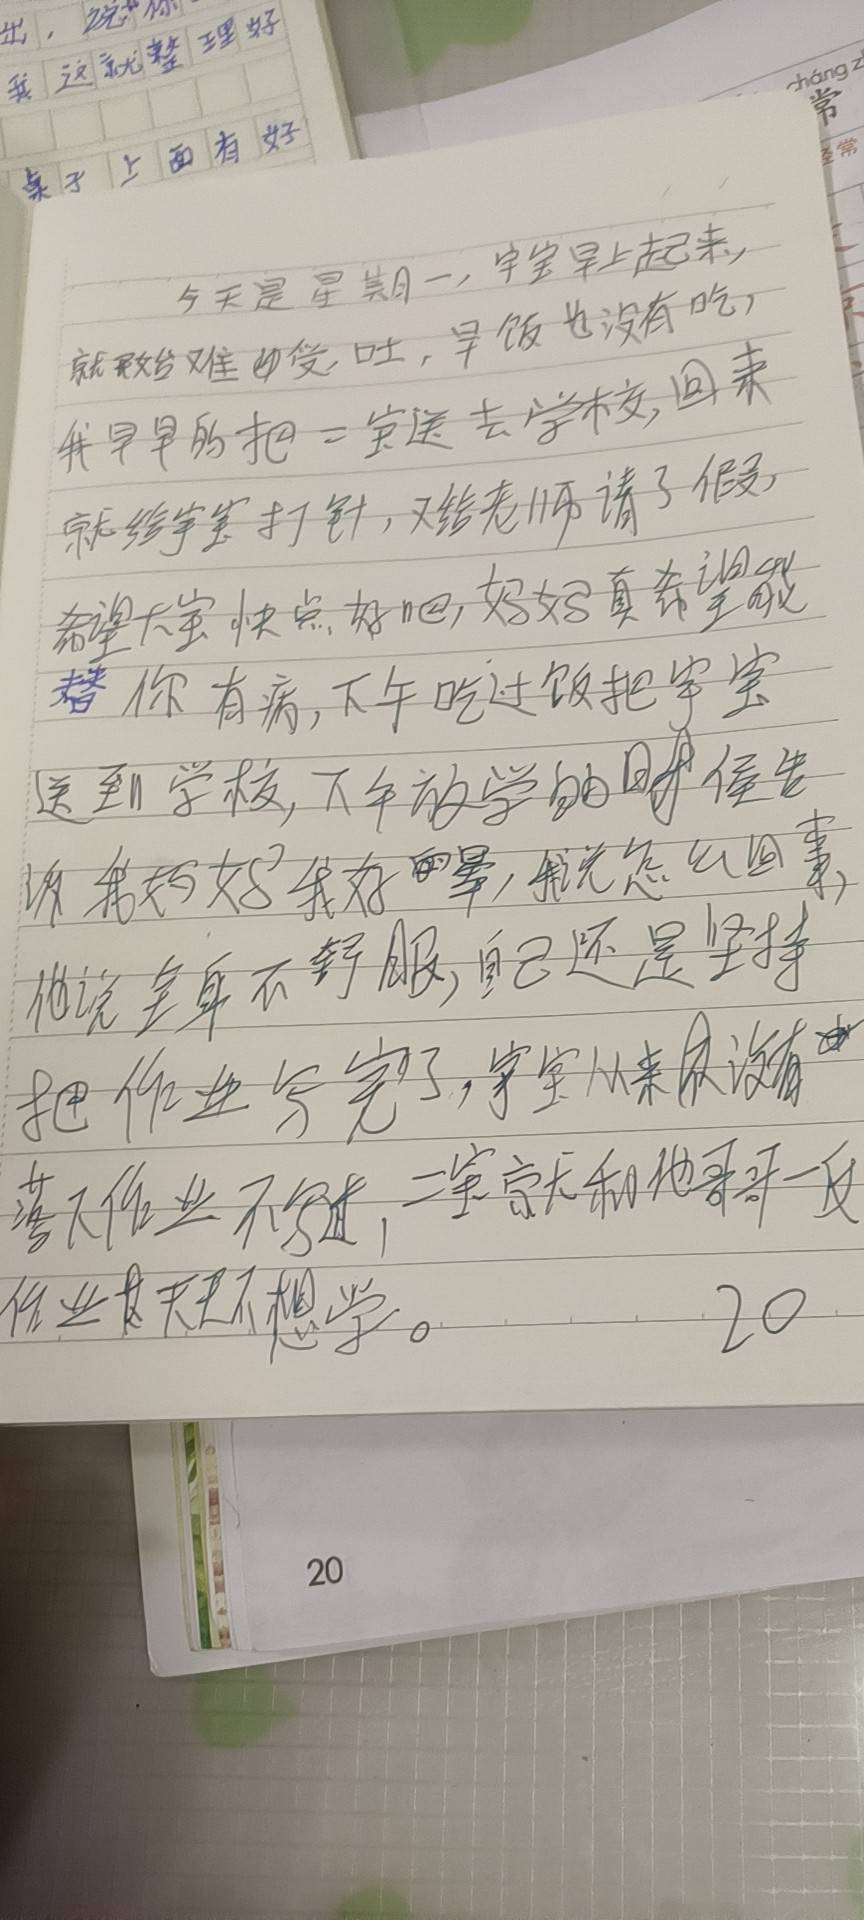 我这就整理好
桌子上面有好
cháng
常
经常
今天是星期一，宇宝早上起来，
就开始难受，吐，早饭也没有吃，
我早早的把二宝送去学校，回来
就给宇宝打针，又给老师请了假，
希望大宝快点好吧，妈妈真希望能
替你有病，下午吃过饭把宇宝
送到学校，下午放学的时候告
诉我妈妈我好晕，我说怎么回事，
他说全身不舒服，自己还是坚持
把作业写完了，宇宝从来没有
落下作业不写过，二宝就和他哥哥一反
作业天天不想学。 20
20